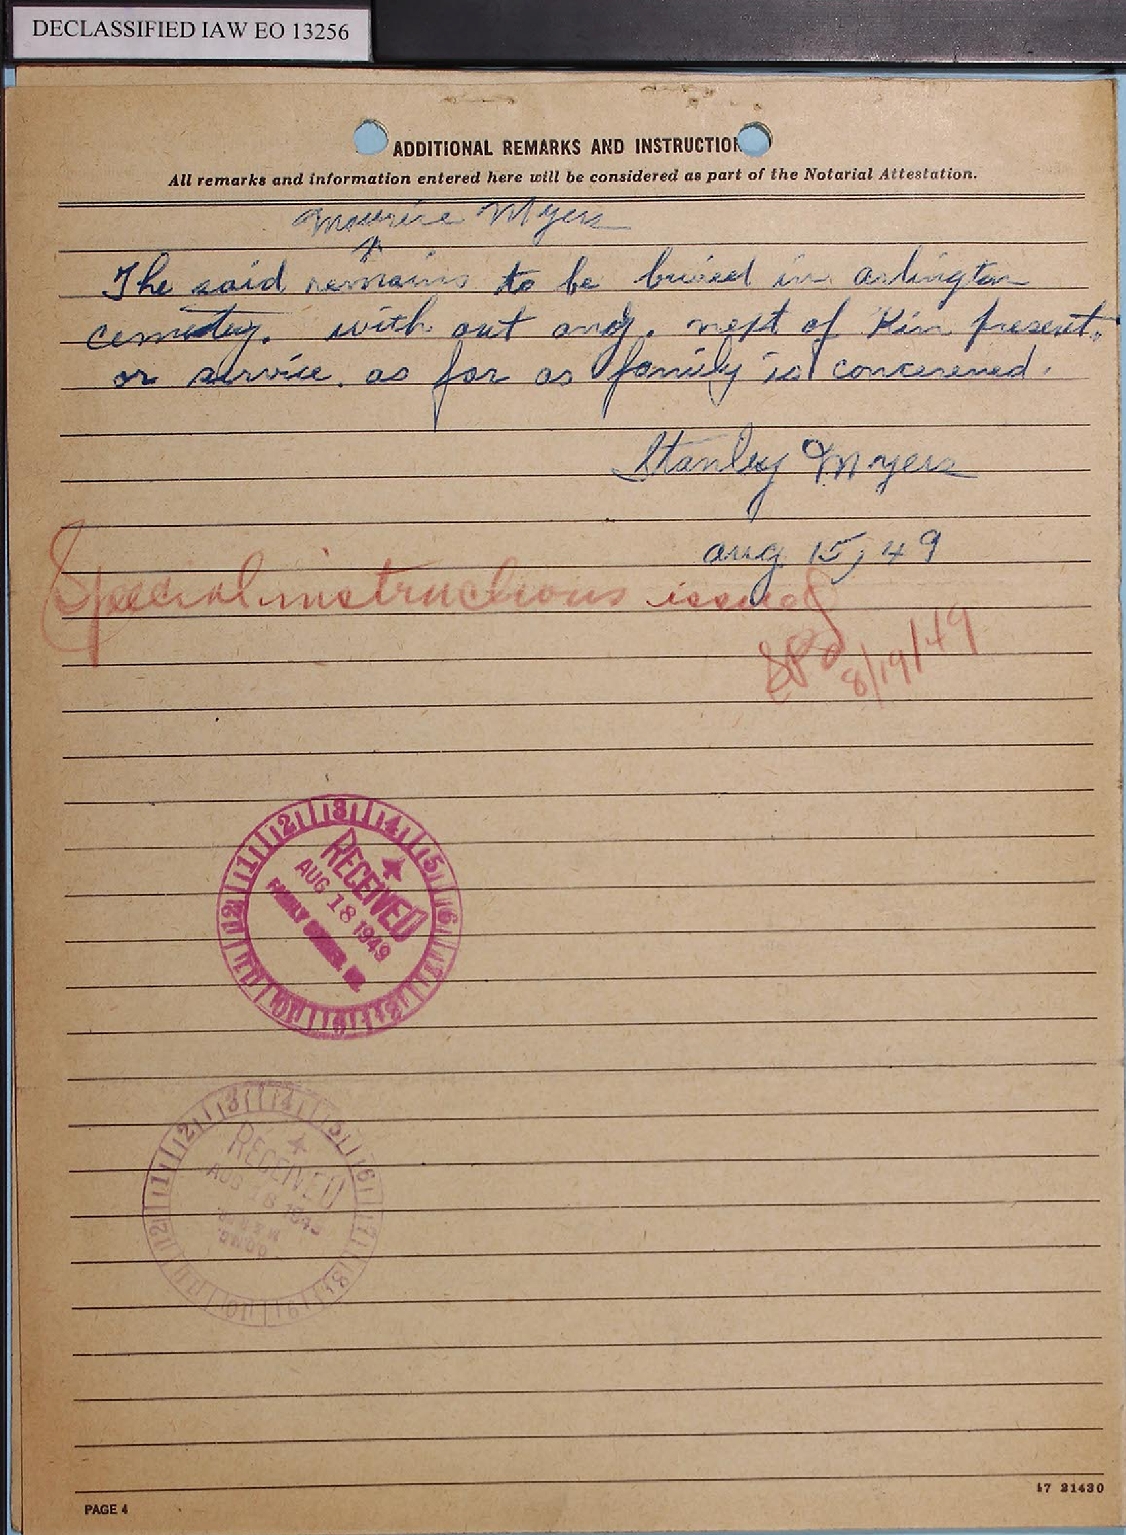 DECLASSIFIED IAW EO 13256
ADDITIONAL REMARKS AND INSTRUCTION
All remarks and information entered here will be considered as part of the Notarial Attestation.
Maurice Myers
The said remains to be buried in arlington
cemetery. with out any. next of Kin present.
or service. as far as family is concerened.
Stanley Myers
aug 15, 49
Special instructions issued
8/19/49
2 3 4 5 6
RECEIVED
AUG 18 1949
RECEIVED
AUG 18 1949
PAGE 4
47 21430